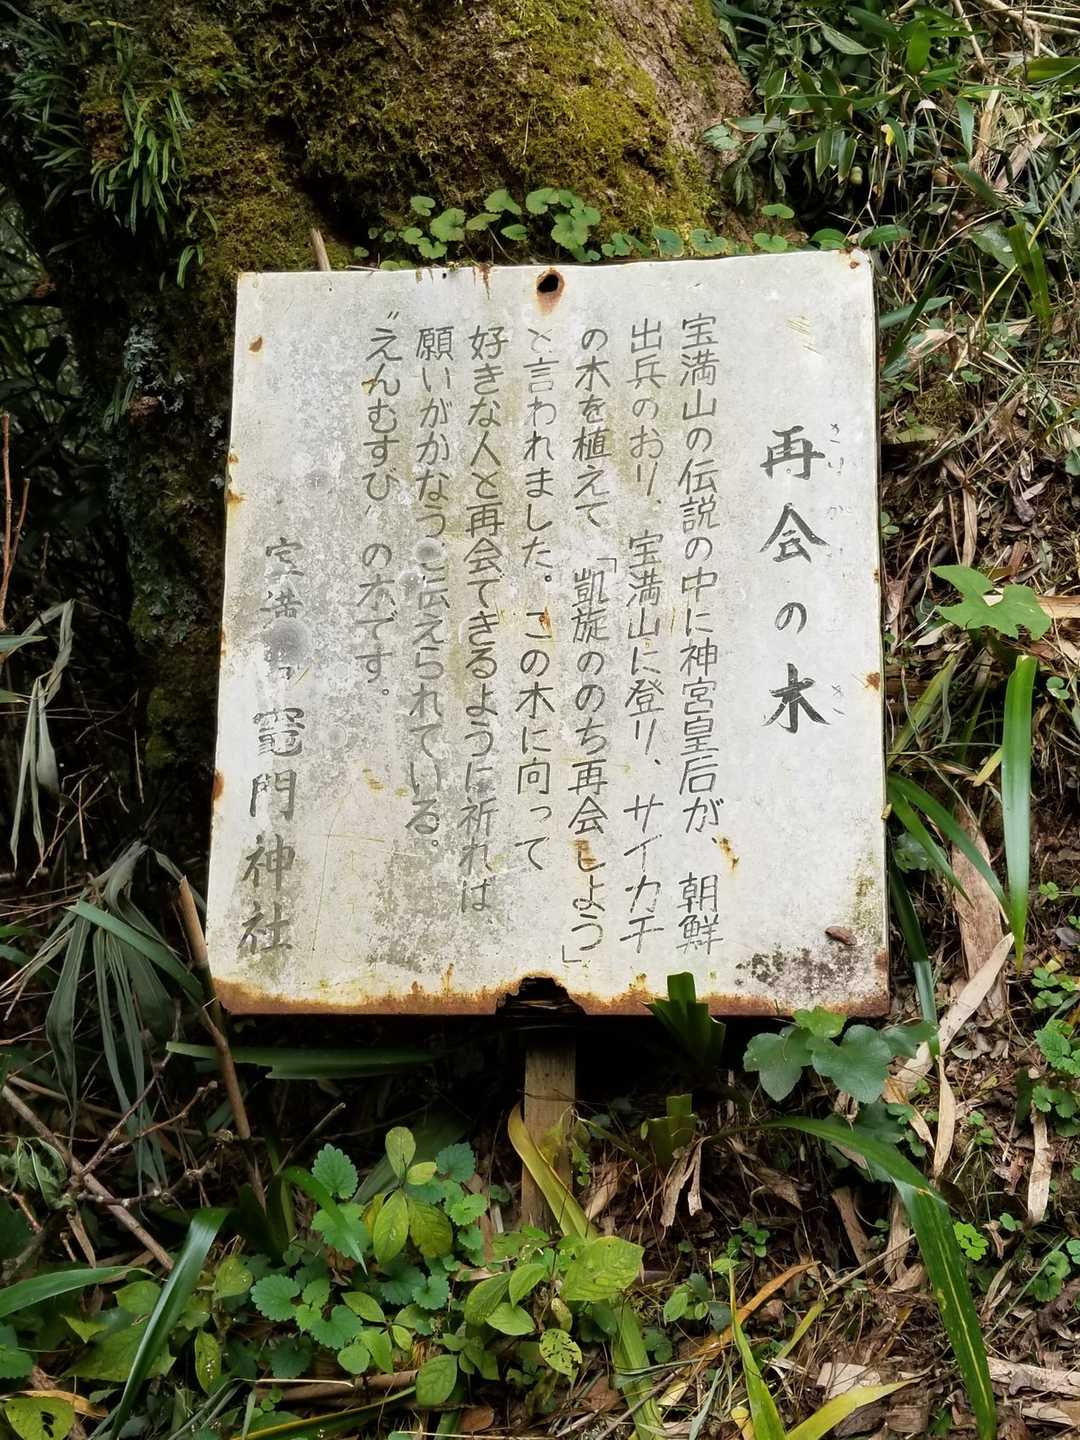 再会の木
宝満山の伝説の中に神宮皇后が、朝鮮
出兵のおり、宝満山に登り、サイカチ
の木を植えて「凱旋ののち再会しよう」
と言われました。この木に向って
好きな人と再会できるように祈れば、
願いがかなうと伝えられている。
〝えんむすび〟の木です。
宝満宮 竈門神社